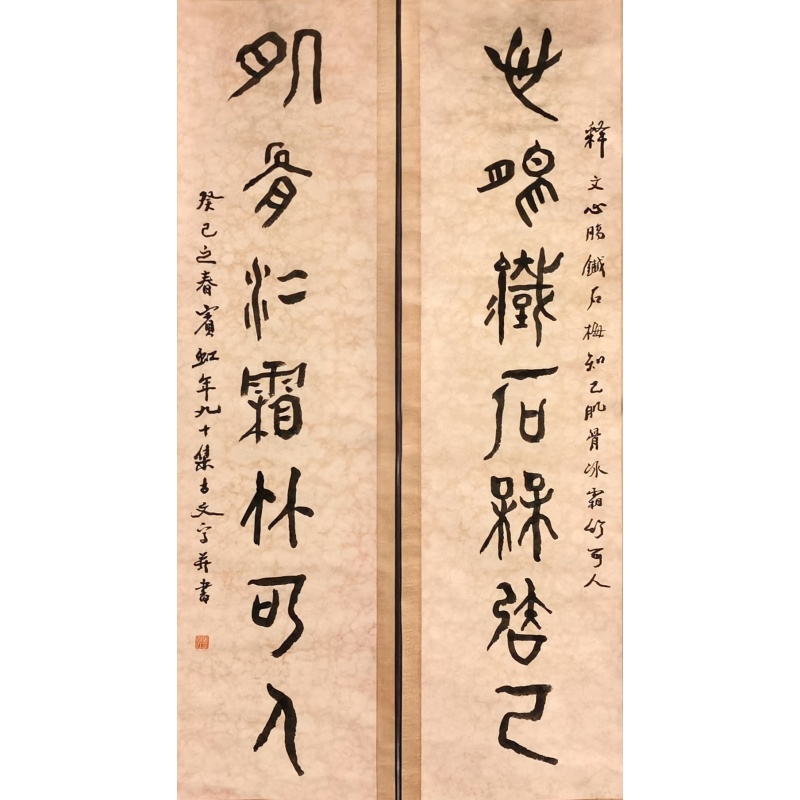 释文心肠鐵石梅知己肌骨冰霜竹可人
心肠鐵石梅知己
肌骨冰霜竹可人
癸巳之春賓虹年九十集古文字并書